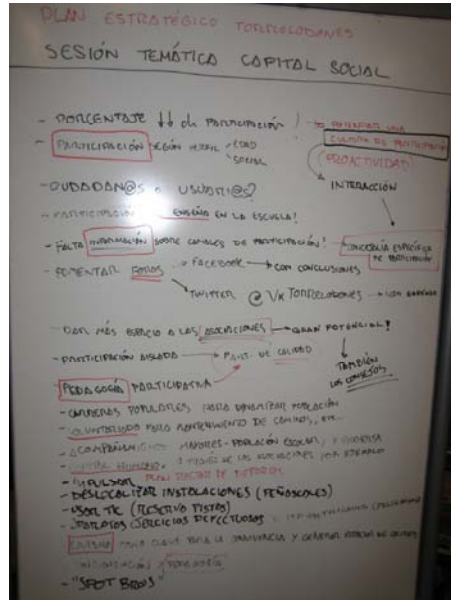 PLAN ESTRATÉGICO TORRELODONES
SESIÓN TEMÁTICA CAPITAL SOCIAL
- PORCENTAJE ↓↓ de PARTICIPACIÓN! → POTENCIAR UNA
CULTURA DE PARTICIPACIÓN
- PARTICIPACIÓN SEGÚN PERFIL EDAD
SOCIAL
(PROACTIVIDAD)
INTERACCIÓN
- CIUDADAN@S o USUARI@S?
- PARTICIPACIÓN ENSEÑA EN LA ESCUELA!
- FALTA INFORMACIÓN SOBRE CANALES DE PARTICIPACIÓN! → CONCEJALÍA ESPECÍFICA
DE PARTICIPACIÓN
- FOMENTAR FOROS → FACEBOOK → CON CONCLUSIONES
→ TWITTER @ VxTORRELODONES →
- DAR MÁS ESPACIO A LAS ASOCIACIONES → GRAN POTENCIAL!
- PARTICIPACIÓN AISLADA → PART. DE CALIDAD
TAMBIÉN
LOS CONSEJOS
- PEDAGOGÍA PARTICIPATIVA
- CARRERAS POPULARES PARA DINAMIZAR POBLACIÓN
- VOLUNTARIADO PARA MANTENIMIENTO DE CAMINOS, etc...
- MAYORES - POBLACIÓN ESCOLAR,
- CAPITAL HUMANO, A TRAVÉS DE LAS ASOCIACIONES POR EJEMPLO
- IMPULSAR PLAN DIRECTOR DE DEPORTES
- DESLOCALIZAR INSTALACIONES (PEÑASCALES)
- USAR TIC (RESERVA PISTAS)
SERVICIOS DEFECTUOSOS
PARA LA CONVIVENCIA Y GENERAR
- "SPOT BRAVO"